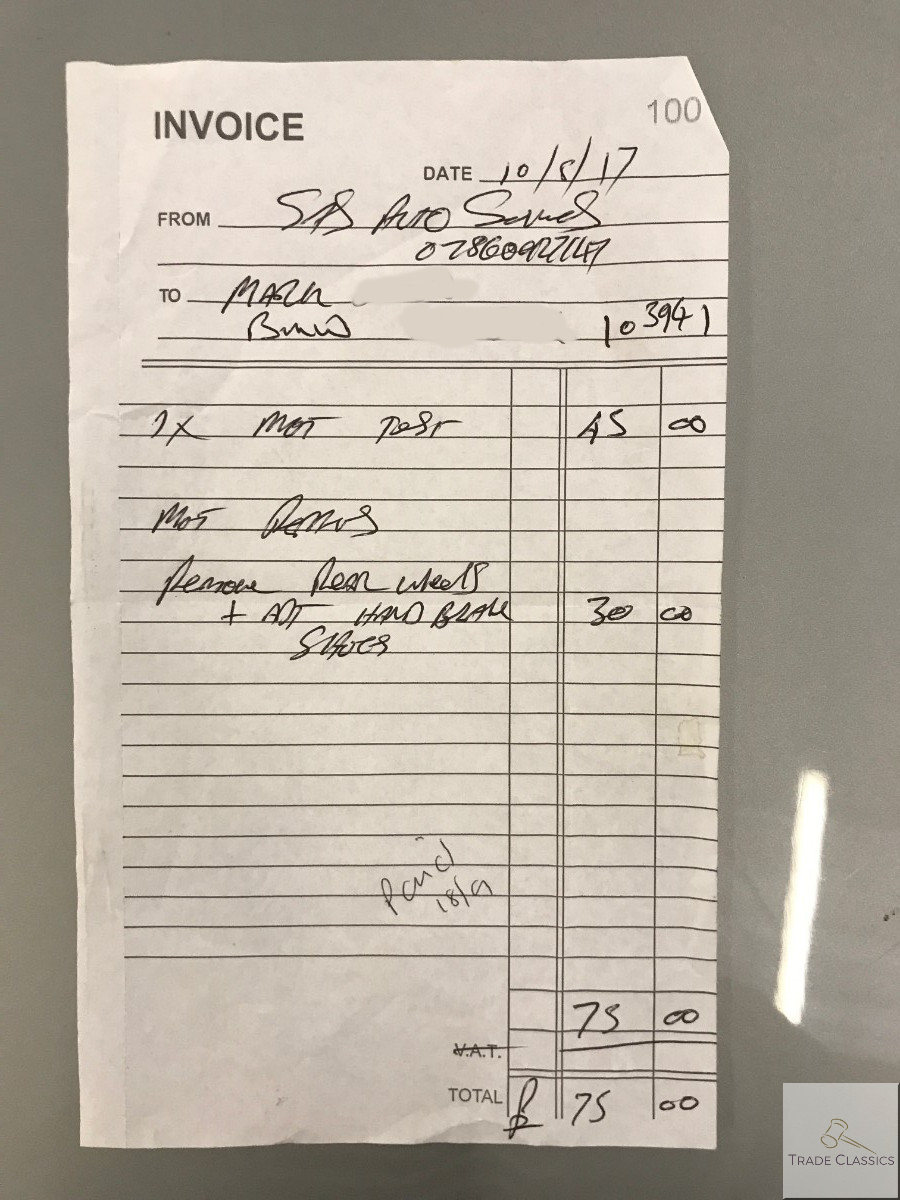 INVOICE
100
DATE 10/8/17
FROM SAS AUTO Services
TO MARK
BMW 103941
1X MOT TEST 45 00
MOT Repairs
Remove Rear wheels
+ ADJ HAND BRAKE 30 00
SHOES
Paid
18/9
75 00
V.A.T.
TOTAL £ 75 00
TRADE CLASSICS